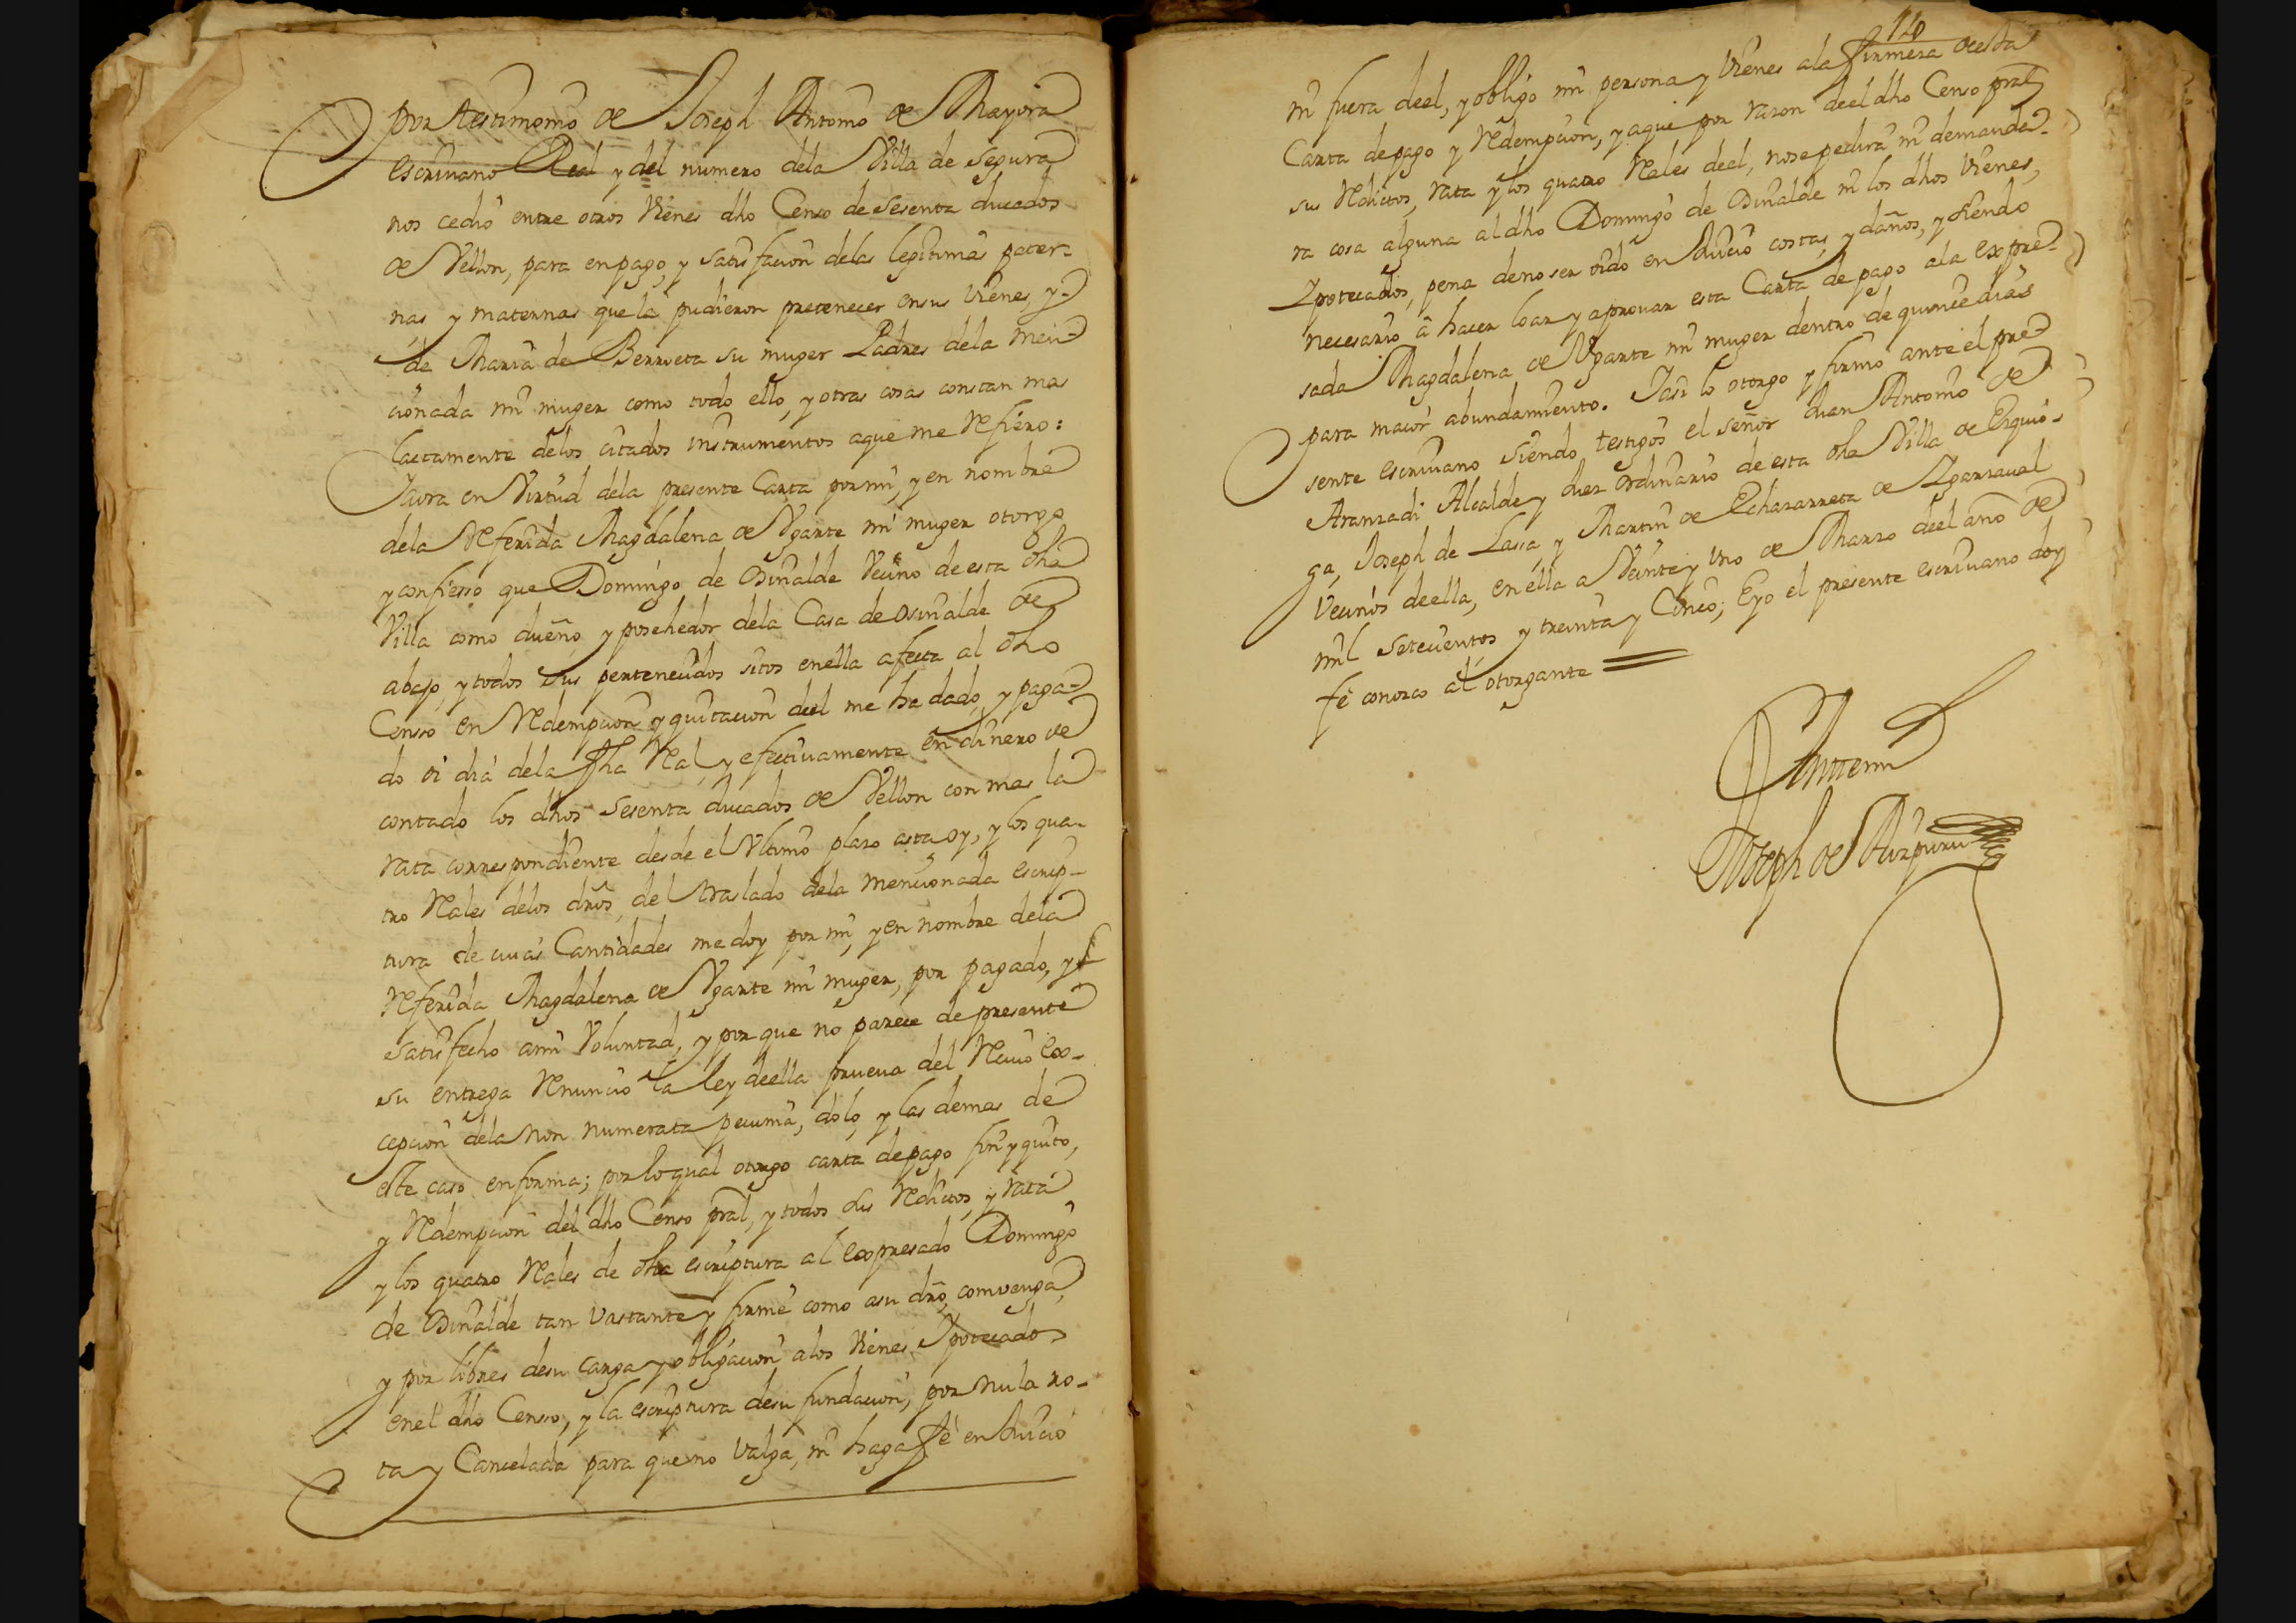 por testimonio de Joseph Antonio de Mayora
escrivano Real y del numero dela Villa de Segura
nos cedió entre otros vienes dho Censo de sesenta ducados
de Vellon, para en pago, y satisfacion delas legitimas pater-
nas y maternas que la pudieron pretenecer en sus vienes, y
de Maria de Berrueta su muger Padres dela men-
cionada mi muger como todo ello, y otras cosas constan mas
lactamente delos citados instrumentos aque me Refiero:
Yaora en Virtud dela presente Carta por mi, y en nombre
dela Referida Magdalena de Ygarte mi muger otorgo
y confiesso que Domingo de Osinalde Vecino de esta dha
Villa como dueño, y posehedor dela Casa de Osinalde de
abajo, y todos sus pertenecidos sitos en ella afecta al dho
Censo en Redempcion y quitacion del me ha dado, y paga-
do oi dia dela fha Ral, y efectivamente en dinero de
contado los dhos sesenta ducados de Vellon con mas la
rata correspondiente desde el Vltimo plazo asta oy, y los qua-
tro Rales delos drõs, del traslado dela mencionada escrip-
tura de cuias Cantidades me doy por mi, y en nombre dela
Referida Magdalena de Ygarte mi muger, por pagado, y
satisfecho ami Voluntad, y por que no parece de presente
su entrega Renuncio la ley deella prueva del Recivo ex-
cepcion dela non numerata pecunia, dolo, y las demas de
este caso en forma; por lo qual otorgo carta de pago fin y quito,
y Redempcion del dho Censo pral, y todos sus Reditos, y rata
y los quatro Rales de dha escriptura al expresado Domingo
de Osinalde tan vastante y firme como asu drõ, comvenga,
y por libres desu carga y obligacion alos vienes Ypotecados
enel dho Censo, y la escriptura desu fundacion, por nula ro-
ta y Cancelada para que no valga, ni haga fé en Juicio
ni fuera deel, y obligo mi persona y vienes ala firmeza de esta
Carta de pago y Redempcion, y aque por razon deel dho Censo pral
sus Reditos, rata y los quatro Rales deel, nose pedirá ni demanda-
ra cosa alguna al dho Domingo de Osinalde ni los dhos vienes,
Ypotecados, pena deno ser oido en Juicio costas, y daños, y siendo
necesario á hacer loar y aprovar esta Carta de pago ala expre-
sada Magdalena de Ygarte mi muger dentro de quince dias
para maior abundamiento. Yasi lo otorgo y firmo ante el pre-
sente escrivano siendo testigos el señor Juan Antonio de
Aranzadi Alcalde y Juez ordinario de esta dha Villa de Ezquio-
ga, Joseph de Lasa, y Martin de Echazarreta de Ygarzaval
Vecinos deella, en ella a Veinte y Uno de Marzo deel año de
mil setecientos y treinta y Cinco; Eyo el presente escrivano doy
fé conozco al otorgante
Antemi
Joseph de Aizpuru